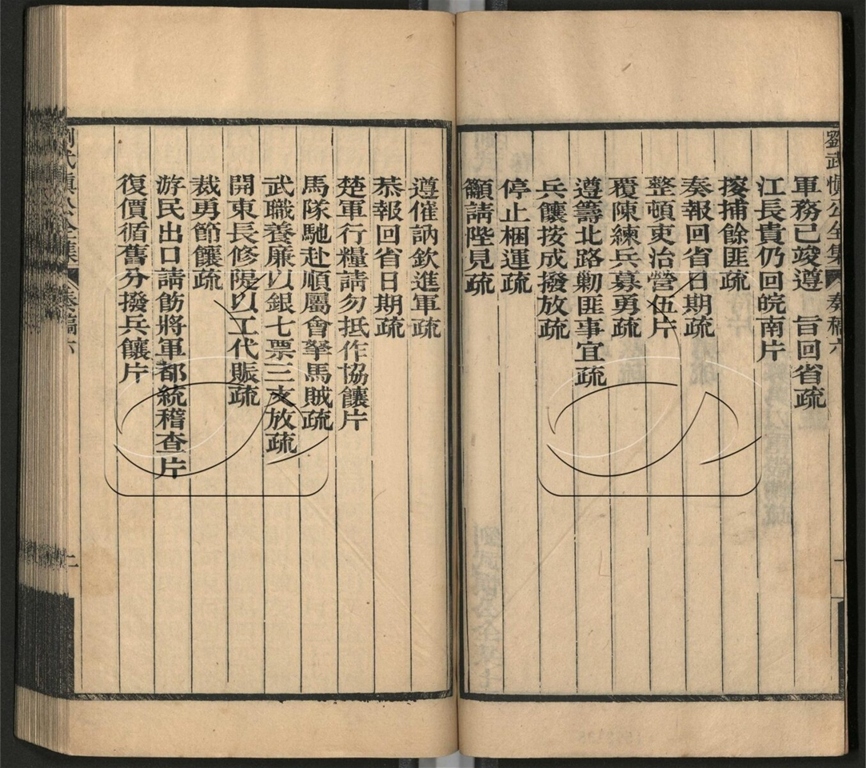 劉武慎公全集 奏稿六
軍務已竣遵 旨回省疏
江長貴仍回皖南片
搜捕餘匪疏
奏報回省日期疏
整頓吏治營伍片
覆陳練兵募勇疏
遵籌北路勦匪事宜疏
兵饟按成撥放疏
停止梱運疏
籲請陛見疏
遵催訥欽進軍疏
恭報回省日期疏
楚軍行糧請勿抵作協饟片
馬隊馳赴順屬會拏馬賊疏
武職養廉以銀七票三支放疏
開東長修隄以工代賑疏
裁勇節饟疏
游民出口請飭將軍都統稽查片
復價循舊分撥兵饟片
劉武慎公全集 奏稿六